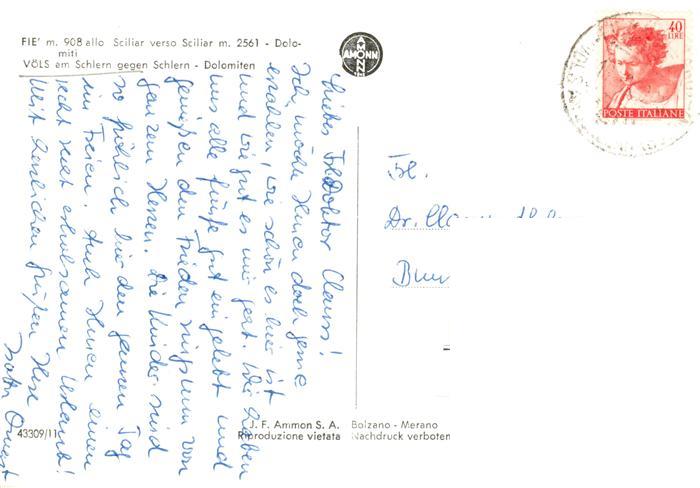 FIE' m. 908 allo Sciliar verso Sciliar m. 2561 - Dolo-
miti
VÖLS am Schlern gegen Schlern - Dolomiten
AMONN
40
LIRE
POSTE ITALIANE
Liebes Frl. Doktor Clauss!
Ich möchte Ihnen doch gerne
erzählen, wie schön es hier ist
und wie gut es mir geht. Wir haben
uns alle fünfe gut eingelebt und
genießen den Frieden ringsum von
ganzem Herzen. Die Kinder sind
so fröhlich hier den ganzen Tag
im Freien. Auch Ihnen einen
recht recht erholsamen Urlaub!
Mit herzlichen Grüßen Ihre
Frl.
Dr.
43309/11
J. F. Ammon S. A. Bolzano - Merano
Riproduzione vietata Nachdruck verboten